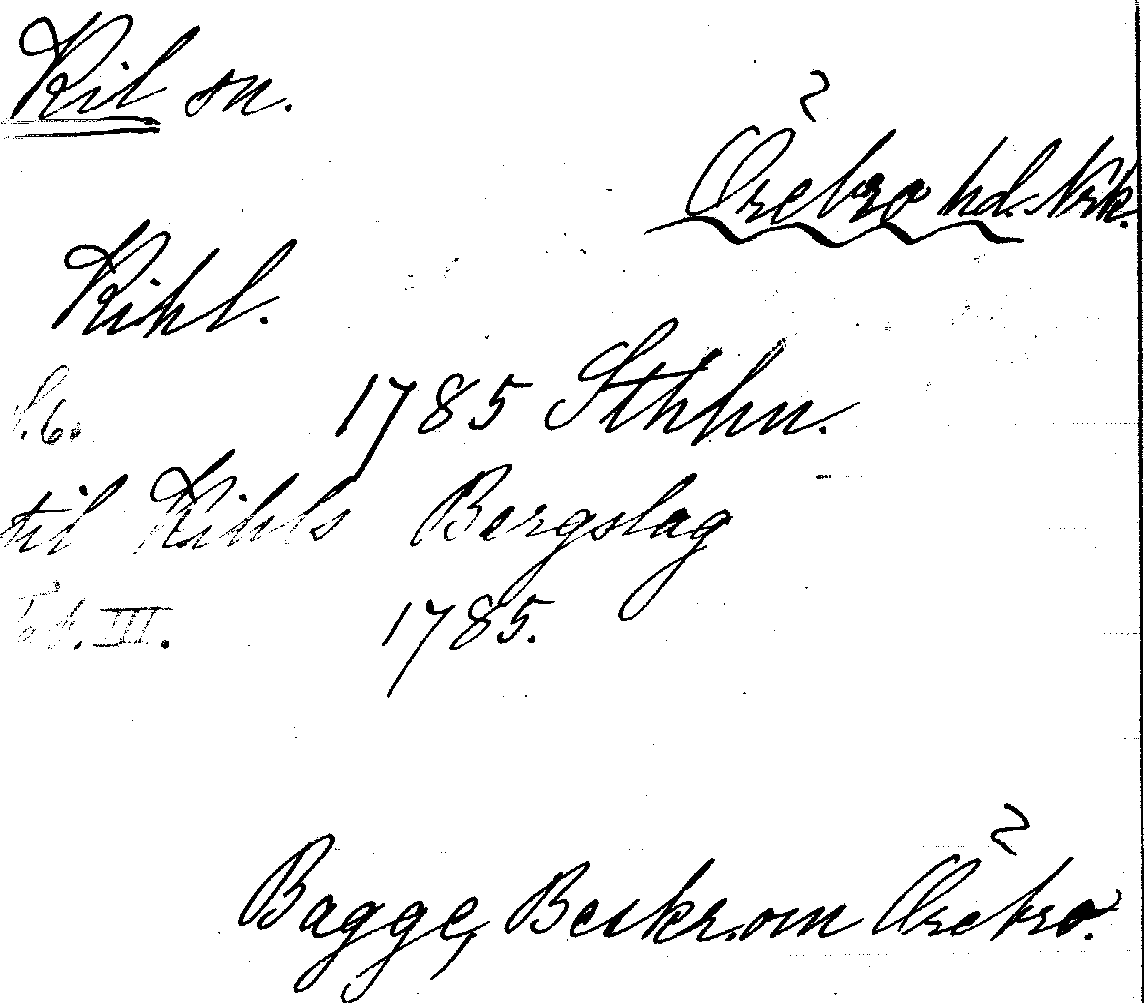 Kil sn.
Örebro hd. Nrk.
Kihl.
S.6. 1785 Sthlm.
til Kihls Bergslag
Tab. III. 1785.
Bagge, Beskr. om Örebro.